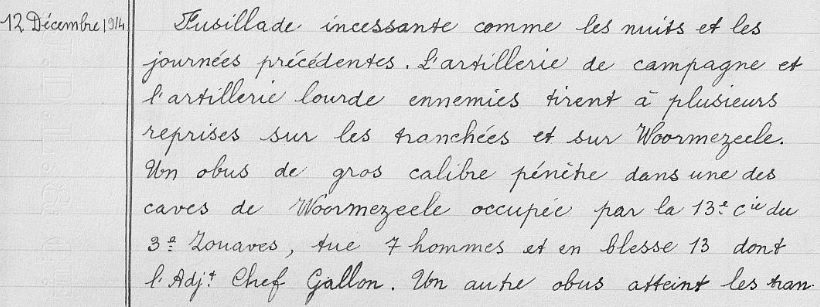 12 Décembre 1914 Fusillade incessante comme les nuits et les
journées précédentes. L'artillerie de campagne et
l'artillerie lourde ennemies tirent à plusieurs
reprises sur les tranchées et sur Woormezeele.
Un obus de gros calibre pénètre dans une des
caves de Woormezeele occupée par la 13e Cie du
3e Zouaves, tue 7 hommes et en blesse 13 dont
l'Adjt Chef Gallon. Un autre obus atteint les tran-